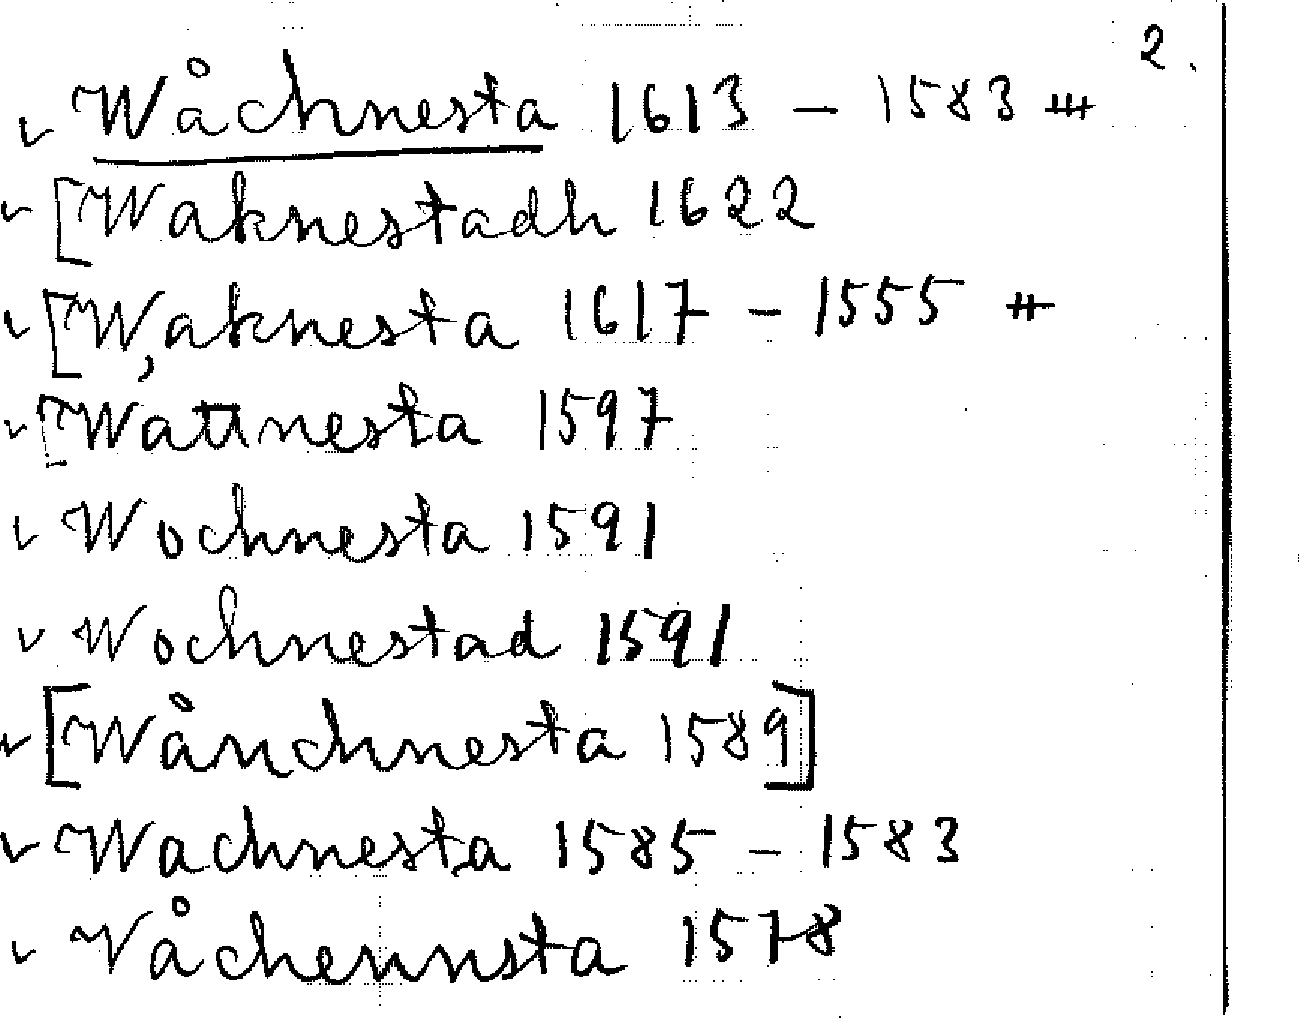 2.
v Wåchnesta 1613 – 1583 ###
v [Waknestadh 1622
v [Waknesta 1617 – 1555 ++
v [Wattnesta 1597
v Wochnesta 1591
v Wochnestad 1591
v [Wånchnesta 1589]
v Wachnesta 1585 – 1583
v Våchennsta 1578